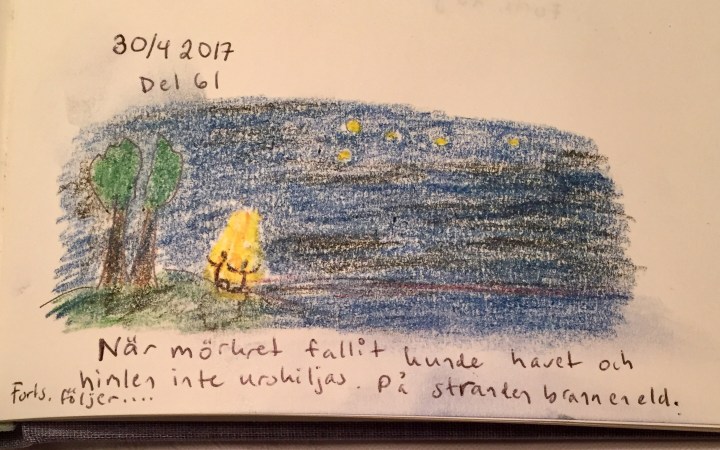 30/4 2017
Del 61
När mörkret fallit kunde havet och
himlen inte urskiljas. På stranden brann en eld.
Forts. följer....